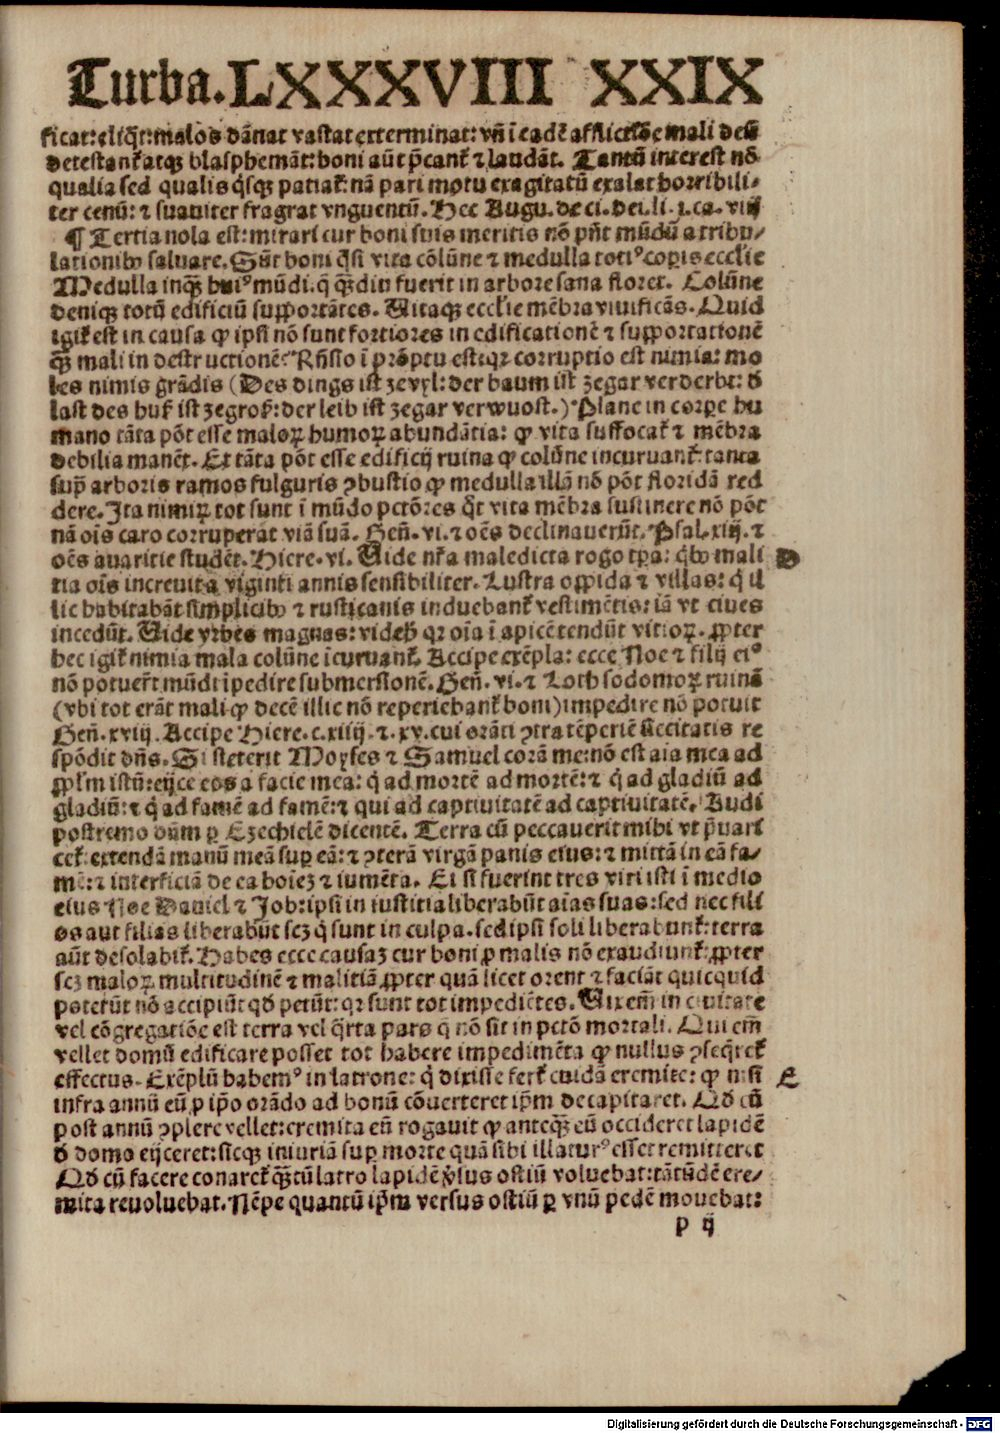 Turba.LXXXVIII XXIX
ficat:eliq̄t:malos dānat vastat exterminat:vn̄ ī eadē afflictiōe mali deū
detestant᷑ atqꝫ blasphemāt:boni aūt p̄cant᷑ ⁊ laudāt. Tantū interest nō
qualia sed qualis q̇sqꝫ patiat᷑: nā pari motu exagitatū exalat horribili⸗
ter cenū: ⁊ suauiter fragrat vnguentū. Hec Augu. de ci. dei. li. j. ca. viij
¶ Tertia nola est: mirari cur boni suis meritis nō pn̄t mūdū a tribu⸗
lationibꝰ saluare. Sūt boni q̄si vita cōlūne ⁊ medulla totiꝰ corꝑis eccl̄ie
Medulla inqꝫ huiꝰ mūdi. q̇ q̄diu fuerit in arbore sana floret. Colūne
deniqꝫ totū edificiū supportātes. Vitaqꝫ eccl̄ie mēbra viuificās. Quid
igit᷑ est in causa ꝙ ipsi nō sunt fortiores in edificationē ⁊ supportationē
q̄ꝫ mali in destructionē? Rn̄sio ī prōptu est: qꝛ corruptio est nimia: mo
les nimis grādis (Des dings ist zevyl: der baum ist zegar verderbt: d̓
last des huß ist zegroß: der leib ist zegar verwuost.) Plane in corꝑe hu
mano tāta pōt esse maloꝝ humoꝝ abundātia: ꝙ vita suffocat᷑ ⁊ mēbra
debilia manēt. Et tāta pōt esse edificij ruina ꝙ colūne incuruant᷑: tanta
sup̄ arboris ramos fulguris ꝯbustio ꝙ medulla illā nō pōt floridā red
dere. Ita nimiꝝ tot sunt ī mūdo pctōres q̄t vita mēbra sustinere nō pōt
nā oīs caro corruperat viā suā. Gen̄. vi. ⁊ oēs declinauerūt. Psal. xiij. ⁊
oēs auaritie studēt. Hiere. vi. Vide nr̄a maledicta rogo tꝑa: q̇bꝰ mali D
tia oīs increuit a viginti annis sensibiliter. Lustra oppida ⁊ villas: q̇ il
lic habitabāt simplicibꝰ ⁊ rusticanis induebant᷑ vestimētis: iā vt ciues
incedūt. Vide vrbes magnas: videb̓ qꝛ oīa ī apicē tendūt vitioꝝ. ꝓpter
hec igit᷑ nimia mala colūne īcuruant᷑. Accipe exēpla: ecce Noe ⁊ filij eiꝰ
nō potuer̄t mūdi īpedire submersionē. Gen̄. vi. ⁊ Loth sodomoꝝ ruinā
(vbi tot erāt mali ꝙ decē illic nō reperiebant᷑ boni) impedire nō potuit
Gen̄. xviij. Accipe Hiere. c. xiiij. ⁊. xv. cui orāti ꝯtra tēperiē siccitatis re
spōdit dn̄s. Si steterit Moyses ⁊ Samuel corā me: nō est aīa mea ad
ꝓplm istū: eijce eos a facie mea: q̇ ad mortē ad mortē: ⁊ q̇ ad gladiū ad
gladiū: ⁊ q̇ ad famē ad famē: ⁊ qui ad captiuitatē ad captiuitatē. Audi
postremo dūm ꝑ Ezechielē dicentē. Terra cū peccauerit mihi vt p̄uari
cet᷑: extendā manū meā suꝑ eā: ⁊ ꝯterā virgā panis eius: ⁊ mittā in eā fa⸗
mē: ⁊ interficiā de ea hoīez ⁊ iumēta. Et si fuerint tres viri isti ī medio
eius Noe Daniel ⁊ Job: ipsi in iustitia liberabūt aīas suas: sed nec fili
os aut filias liberabūt scꝫ q̇ sunt in culpa. sed ipsi soli liberabunt᷑: terra
aūt desolabit᷑. Habes ecce causaꝫ cur boni ꝓ malis nō exaudiunt᷑: ꝓpter
scꝫ maloꝝ multitudinē ⁊ malitiā ꝓpter quā licet orent ⁊ faciāt quicquid
poterūt nō accipiūt qd̓ petūt: qꝛ sunt tot impediētes. Vix em̄ in ciuitate
vel cōgregatiōe est terra vel q̄rta pars q̄ nō sit in pctō mortali. Qui em̄
vellet domū edificare posset tot habere impedimēta ꝙ nullus ꝯseq̄ret᷑
effectus. Exēplū habemꝰ in latrone: q̇ dixisse fert᷑ cuidā eremite: ꝙ nisi E
infra annū eū ꝓ ip̄o orādo ad bonū cōuerteret ip̄m decapitaret. Qd̓ cū
post annū ꝯplere vellet: eremita eū rogauit ꝙ anteqꝫ eū occideret lapidē
d̓ domo eijceret: sicqꝫ iniuriā suꝑ morte quā sibi illaturꝰ esset remitteret
Qd̓ cū facere conaret᷑ q̄ꝫtū latro lapidē v̓sus ostiū voluebat: tātūdē ere⸗
mita reuoluebat. Nēpe quantū ip̄m versus ostiū ꝑ vnū pedē mouebat:
p ij
Digitalisierung gefördert durch die Deutsche Forschungsgemeinschaft - DFG